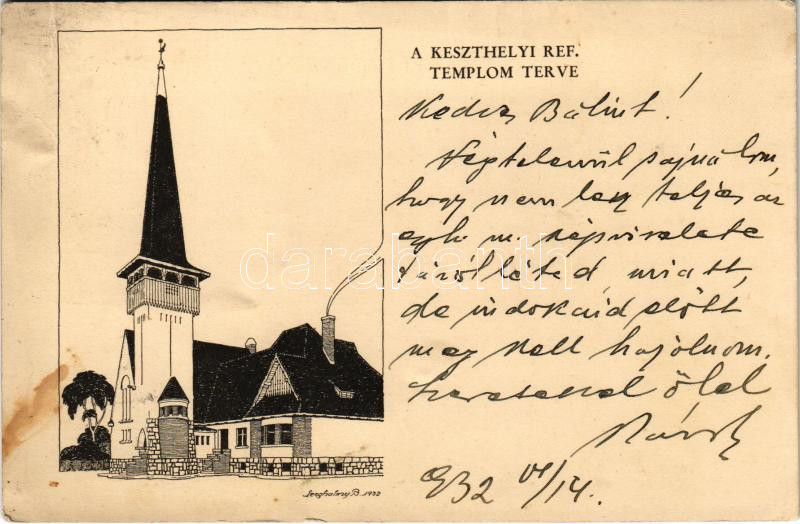 A KESZTHELYI REF.
TEMPLOM TERVE
Kedves Bálint!
Végtelenül sajnálom,
hogy nem lesz teljes az
egyh. m. képviselete
távolléted miatt,
de indokaid előtt
meg kell hajolnom.
Szeretettel ölel
932 VI/14.
Szeghalmy B. 1932
darabanth